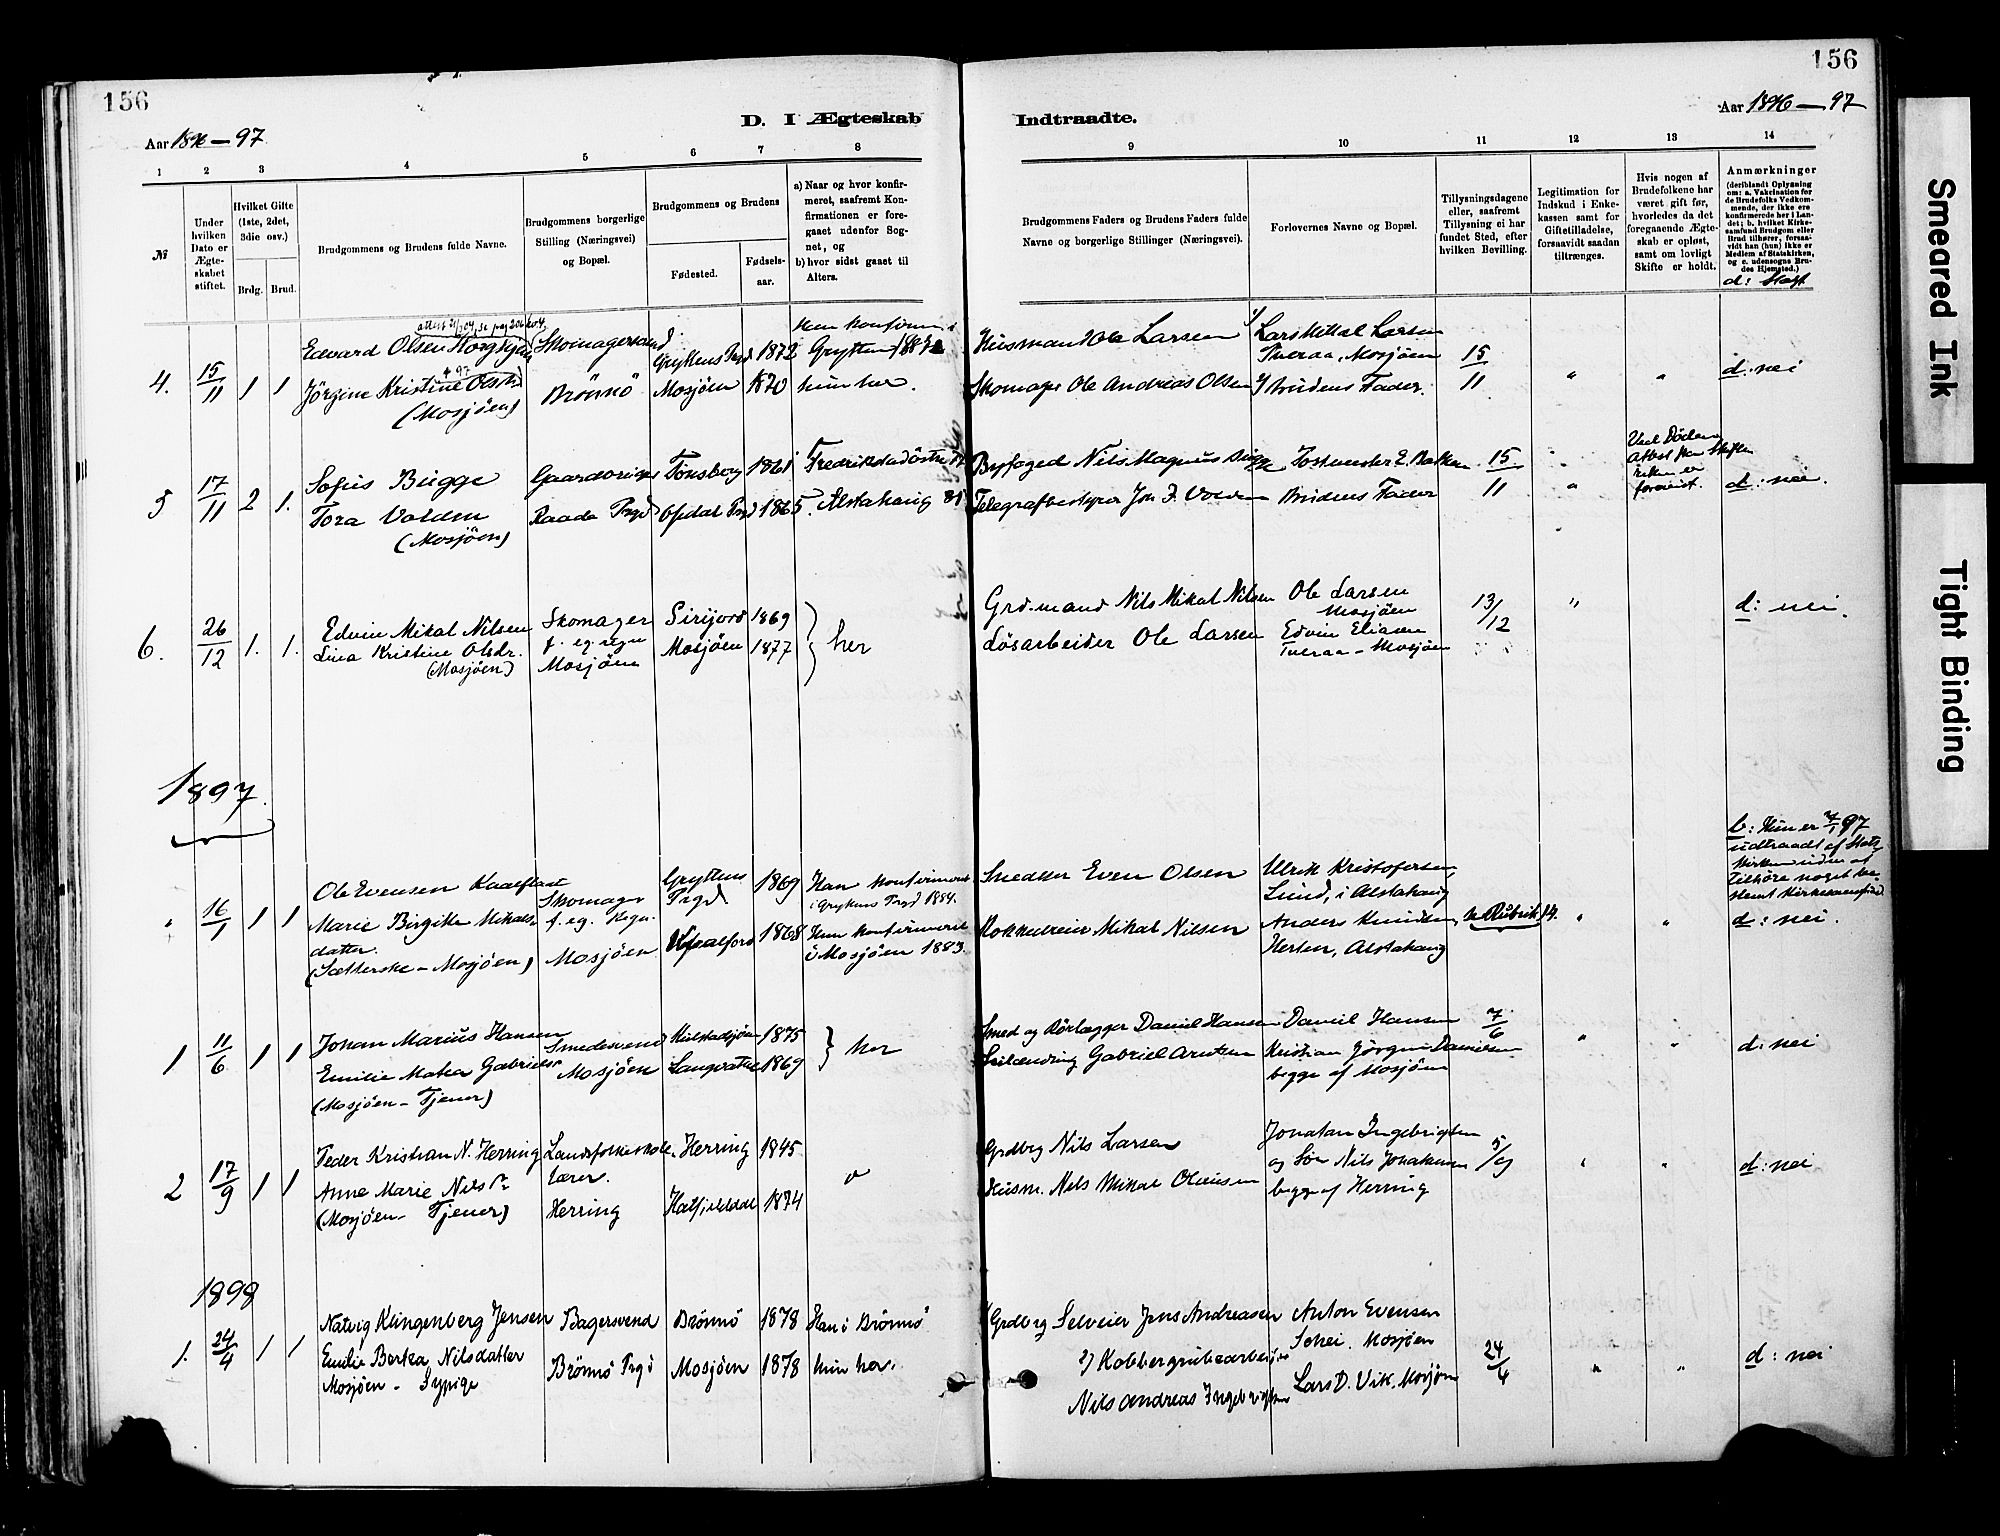 156
156
Aar 1896–97
D. I Ægteskab
Indtraadte.
Aar 1896–97
1 2 3 4 5 6 7 8
9 10 11 12 13 14
№
Under hvilken Dato er Ægteskabet stiftet.
Hvilket Gifte (1ste, 2det, 3die osv.)
Brdg. Brud.
Brudgommens og Brudens fulde Navne.
Brudgommens borgerlige Stilling (Næringsvei) og Bopæl.
Brudgommens og Brudens
Fødested.
Fødsels-aar.
a) Naar og hvor konfirmeret, saafremt Konfirmationen er foregaaet udenfor Sognet, og
b) hvor sidst gaaet til Alters.
Brudgommens Faders og Brudens Faders fulde Navne og borgerlige Stillinger (Næringsvei).
Forlovernes Navne og Bopæl.
Tillysningsdagene eller, saafremt Tillysning ei har fundet Sted, efter hvilken Bevilling.
Legitimation for Indskud i Enkekassen samt for Giftetilladelse, forsaavidt saadan tiltrænges.
Hvis nogen af Brudefolkene har været gift før, hvorledes da det foregaaende Ægteskab er opløst, samt om lovligt Skifte er holdt.
Anmærkninger
(deriblandt Oplysning om: a. Vakcination for de Brudefolks Vedkommende, der ikke ere konfirmerede her i Landet; b. hvilket Kirkesamfund Brudgom eller Brud tilhører, forsaavidt han (hun) ikke er Medlem af Statskirken, og c. udensogns Brudes Hjemsted.)
d: Slægt
4. 15/11 1 1
Edvard Olsen
Skomagersvend
Gryttens Prgd 1872
Husmand Ole Larsen
1/ Lars Mikal Larsen
Tveraa, Mosjøen
15/11
" "
d: nei
Jörgine Kristine Olsd.
(Mosjøen)
Brönnö
Mosjöen 1870
hun her.
Skomager Ole Andreas Olsen
2/ Brudens Fader.
5 17/11 2 1.
Sofus Bugge
Gaardbruger
Tönsberg 1861
Byfoged Nils Magnus Bugge
15/11
"
Ved Döden
d: nei.
Tora Volden
(Mosjöen)
Raade Prgd
Opdal Prgd 1865
Alstahaug 81
Telegrafbestyrer Jon J. Volden
Brudens Fader
6. 26/12 1. 1.
Edvin Mikal Nilsen
Skomager
f. eg. regn
Sirijord 1869
her
Grd.mand Nils Mikal Nilsen
Ole Larsen
Mosjöen
13/12
"
d: nei
Lina Kristine Olsdr.
(Mosjöen)
Mosjöen
Mosjöen 1877
Lösarbeider Ole Larsen
Edvin Eliasen
Tveraa – Mosjöen
1897
" 16/1 1 1
Ole Evensen
Skomager
f. eg. Regn.
Gryttens Prgd 1869
Han konfirmeret
i Gryttens Prgd 1884.
Even Olsen
Ulrik Kristofersen,
Lund, i Alstahaug
b: Hun er 7/1 97
udtraadt af Stats-
kirken uden at
tilhöre noget be-
stemt Kirkesamfund
Marie Birgitte Mikals-
datter.
(Sætterske – Mosjöen)
Mosjöen
1868
Hun konfirmeret
i Mosjöen 1883.
Mikal Nilsen
Anders Knudsen
Alstahaug
se Rubrik 14.
" "
d: nei.
1 11/6 1 1
Johan Marius Hansen
Smedesvend
1875
her
Smed og Rörlægger Daniel Hansen
Daniel Hansen
7/6
" "
d: nei
Emilie Gabriels
(Mosjöen – Tjener)
Mosjöen
1869
Gabriel Arntsen
Kristian Jörgen Danielsen
begge af Mosjöen
2 17/9 1 1
Peder Kristian N. Herring
Landsfolkeskole-
lærer.
Herring 1845
"
Grdbrg Nils Larsen
Jonatan Ingebrigtsen
og Sön Nils Jonatansen
begge af Herring
5/9
" "
d: nei
Anne Marie Nils
(Mosjöen – Tjener)
Herring
Hatfjelddal 1874
Husm. Nels Mikal Olausen
1898
1. 24/4 1 1
Natvig Klingenberg Jensen
Bagersvend
Brönnö 1878
Han i Brönnö
1/ Grdbrg Selveier Jens Andreasen
Anton Evensen
Mosjöen
24/4
" "
d: nei
Emilie Berka Nilsdatter
Mosjöen – Sypige
Brönnö Prgd
Mosjöen 1878
hun her.
2) Kobbergrubearbeider
Nils Andreas Ingebrigtsen
Lars D. Vik, Mosjöen
Smeared Ink
Tight Binding